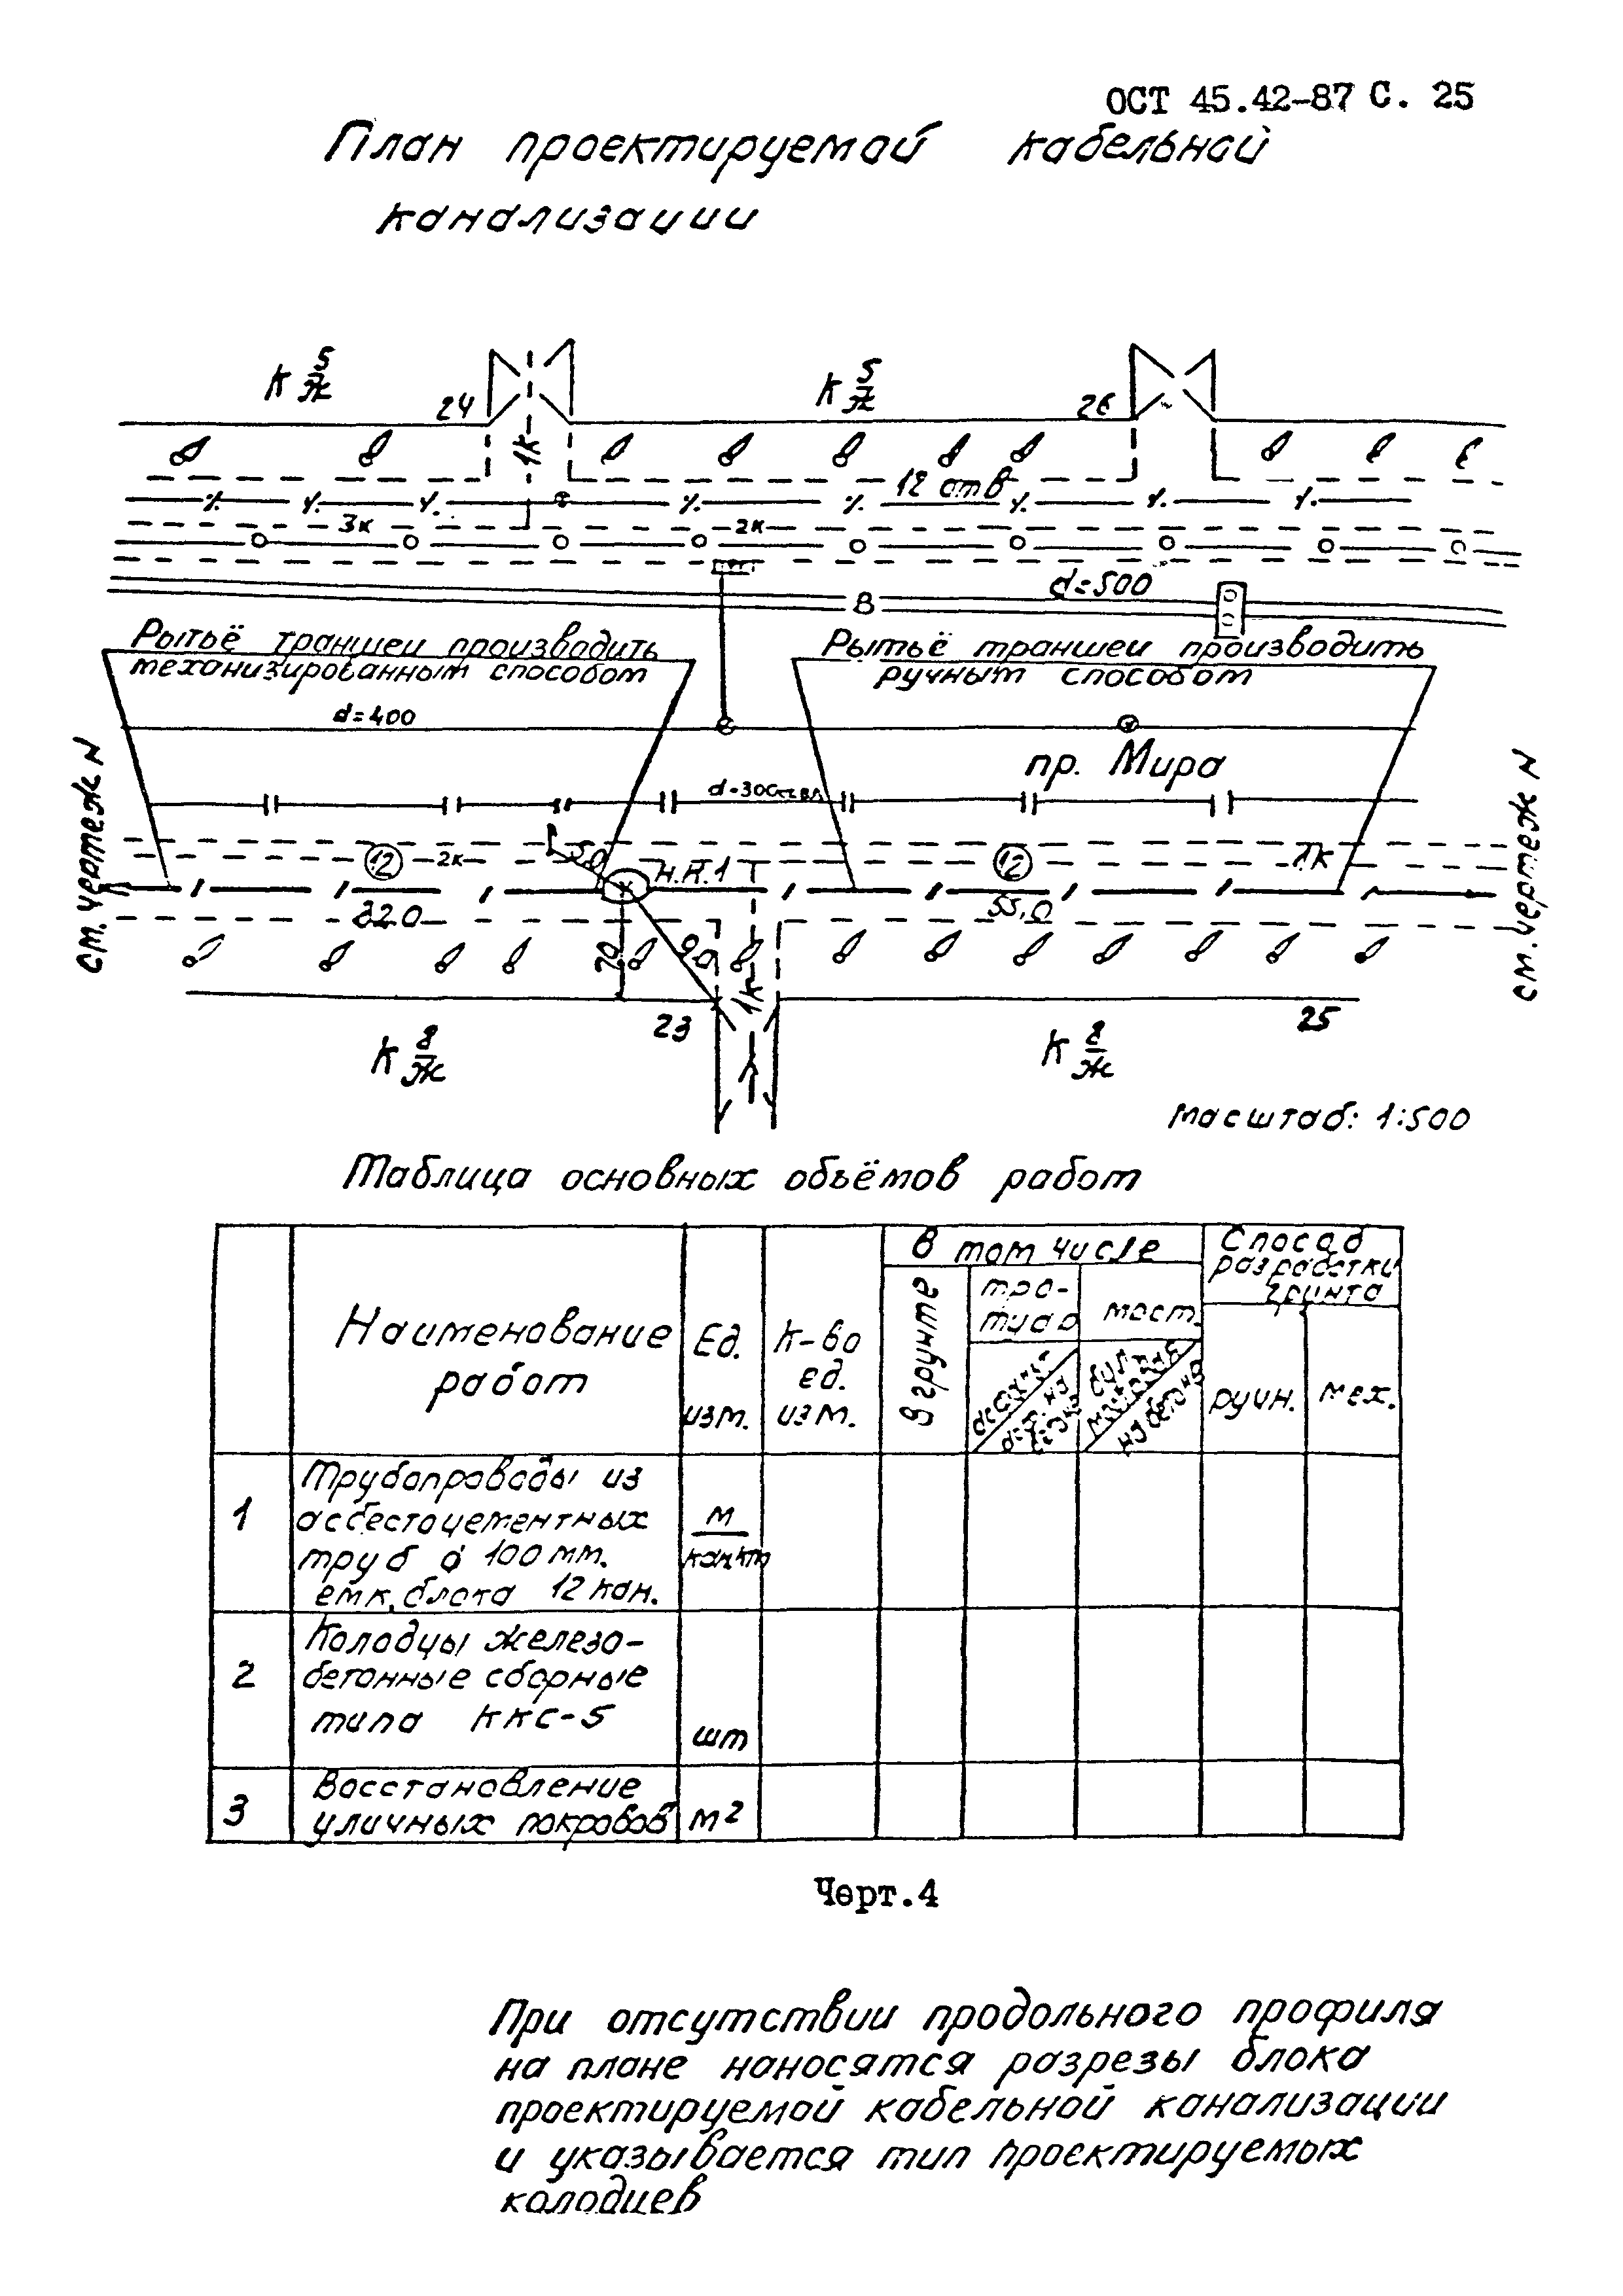 ОСТ 45.42-87 С. 25
План проектируемой кабельной
канализации
К 5/Ж
К 5/Ж
24
26
1К
12 отв
3К
2К
d=500
В
Рытьё траншеи производить
механизированным способом
Рытьё траншеи производить
ручным способом
d=400
пр. Мира
см. чертеж N
см. чертеж N
12
2К
5,0
Н.К.1
12
1К
55,0
1К
23
25
К 8/Ж
К 8/Ж
масштаб: 1:500
Таблица основных объёмов работ
Наименование
работ
Ед.
изм.
К-во
ед.
изм.
В том числе
В грунте
тро-
туар
мост.
Способ
разработки
грунта
ручн.
мех.
1
Трубопроводы из
асбестоцементных
труб d 100 мм.
емк. блока 12 кан.
м
2
Колодцы железо-
бетонные сборные
типа ККС-5
шт
3
Восстановление
уличных покровов
м²
Черт.4
При отсутствии продольного профиля
на плане наносятся разрезы блока
проектируемой кабельной канализации
и указывается тип проектируемых
колодцев